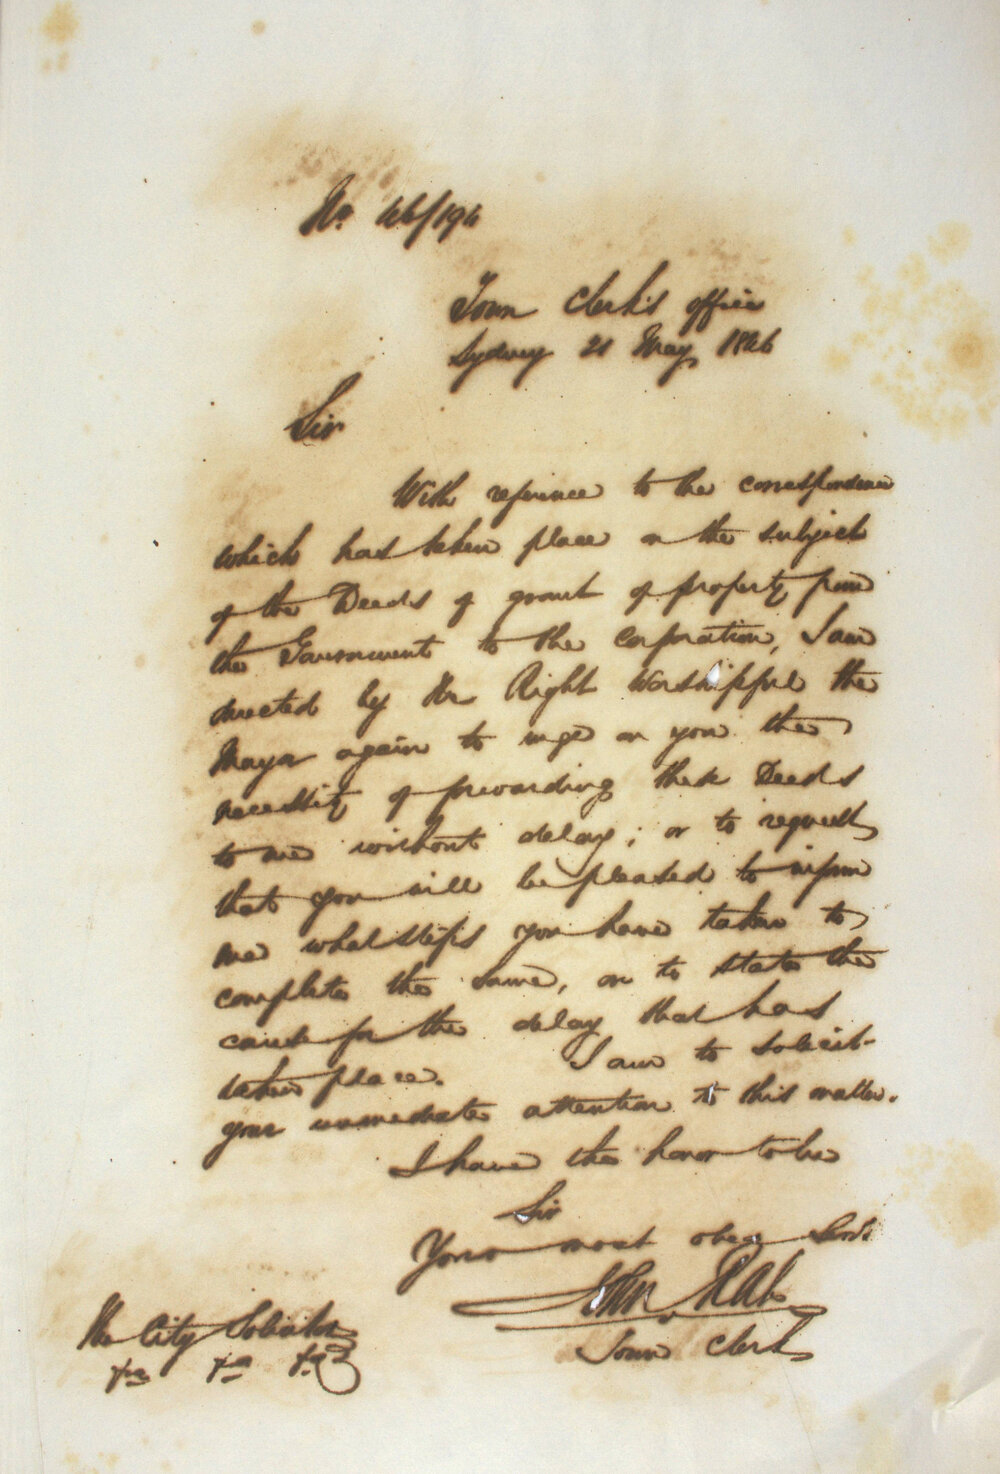 No. 46/196
Town Clerk's office
Sydney 21 May 1846
Sir
With reference to the correspondence
which has taken place on the subject
of the Deeds of grant of property from
the Government to the Corporation, I am
directed by the Right Worshipful the
Mayor again to urge on you the
necessity of forwarding these Deeds
to me without delay; or to request
that you will be pleased to inform
me what steps you have taken to
complete the same, or to state the
cause for the delay that has
taken place. I am to solicit
your immediate attention to this matter.
I have the honor to be
Sir
Your most obed Servt
John Rae
Town Clerk
The City Solicitor